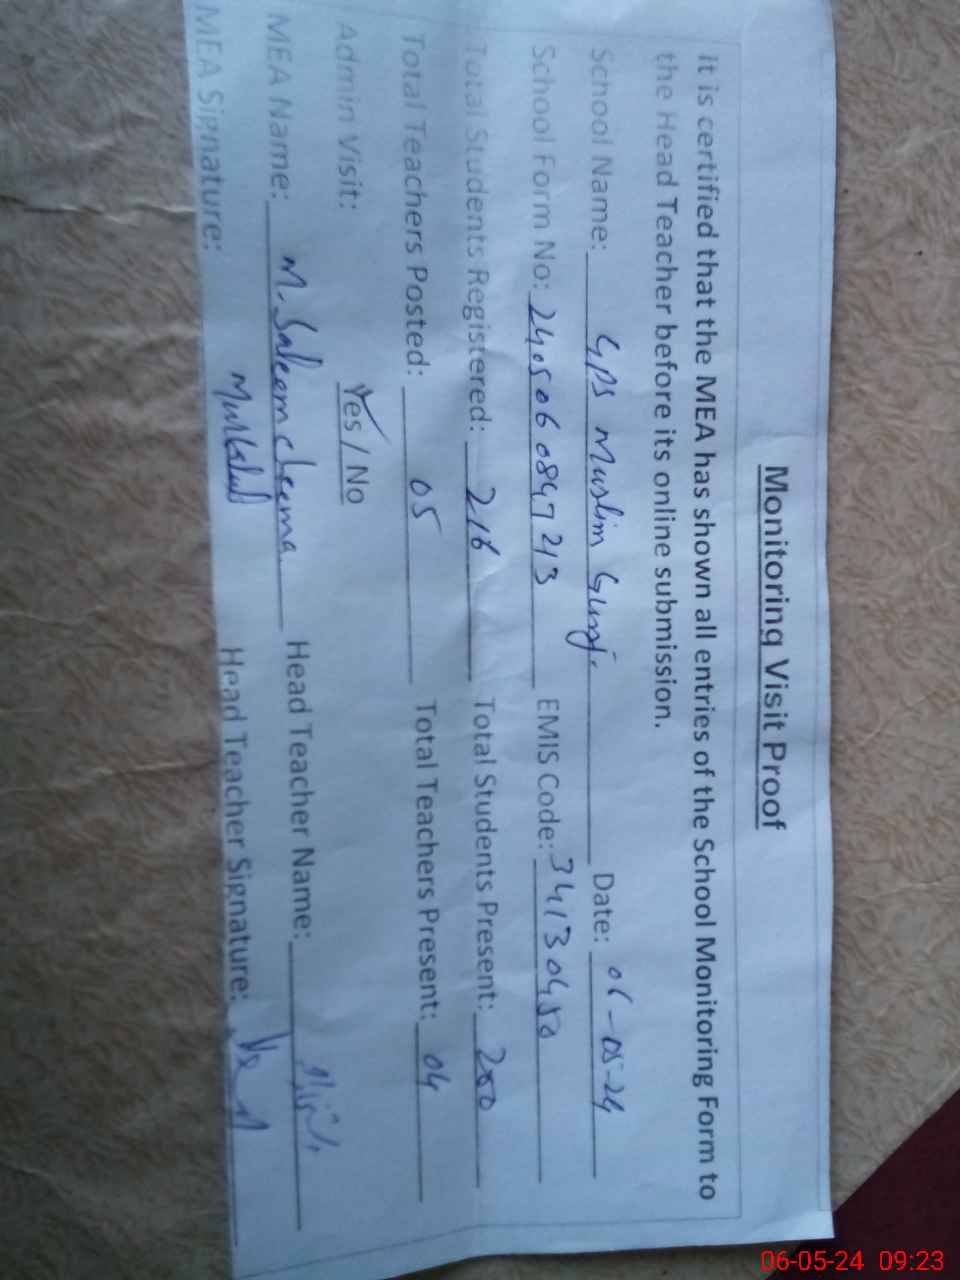 Monitoring Visit Proof
It is certified that the MEA has shown all entries of the School Monitoring Form to
the Head Teacher before its online submission.
School Name: GPS Muslim Gunj. Date: 06-05-24
School Form No: 2405060847213 EMIS Code: 34130450
Total Students Registered: 216 Total Students Present: 200
Total Teachers Posted: 05 Total Teachers Present: 04
Admin Visit: Yes / No
MEA Name: M. Saleem cheema Head Teacher Name:
MEA Signature: Head Teacher Signature:
06-05-24 09:23